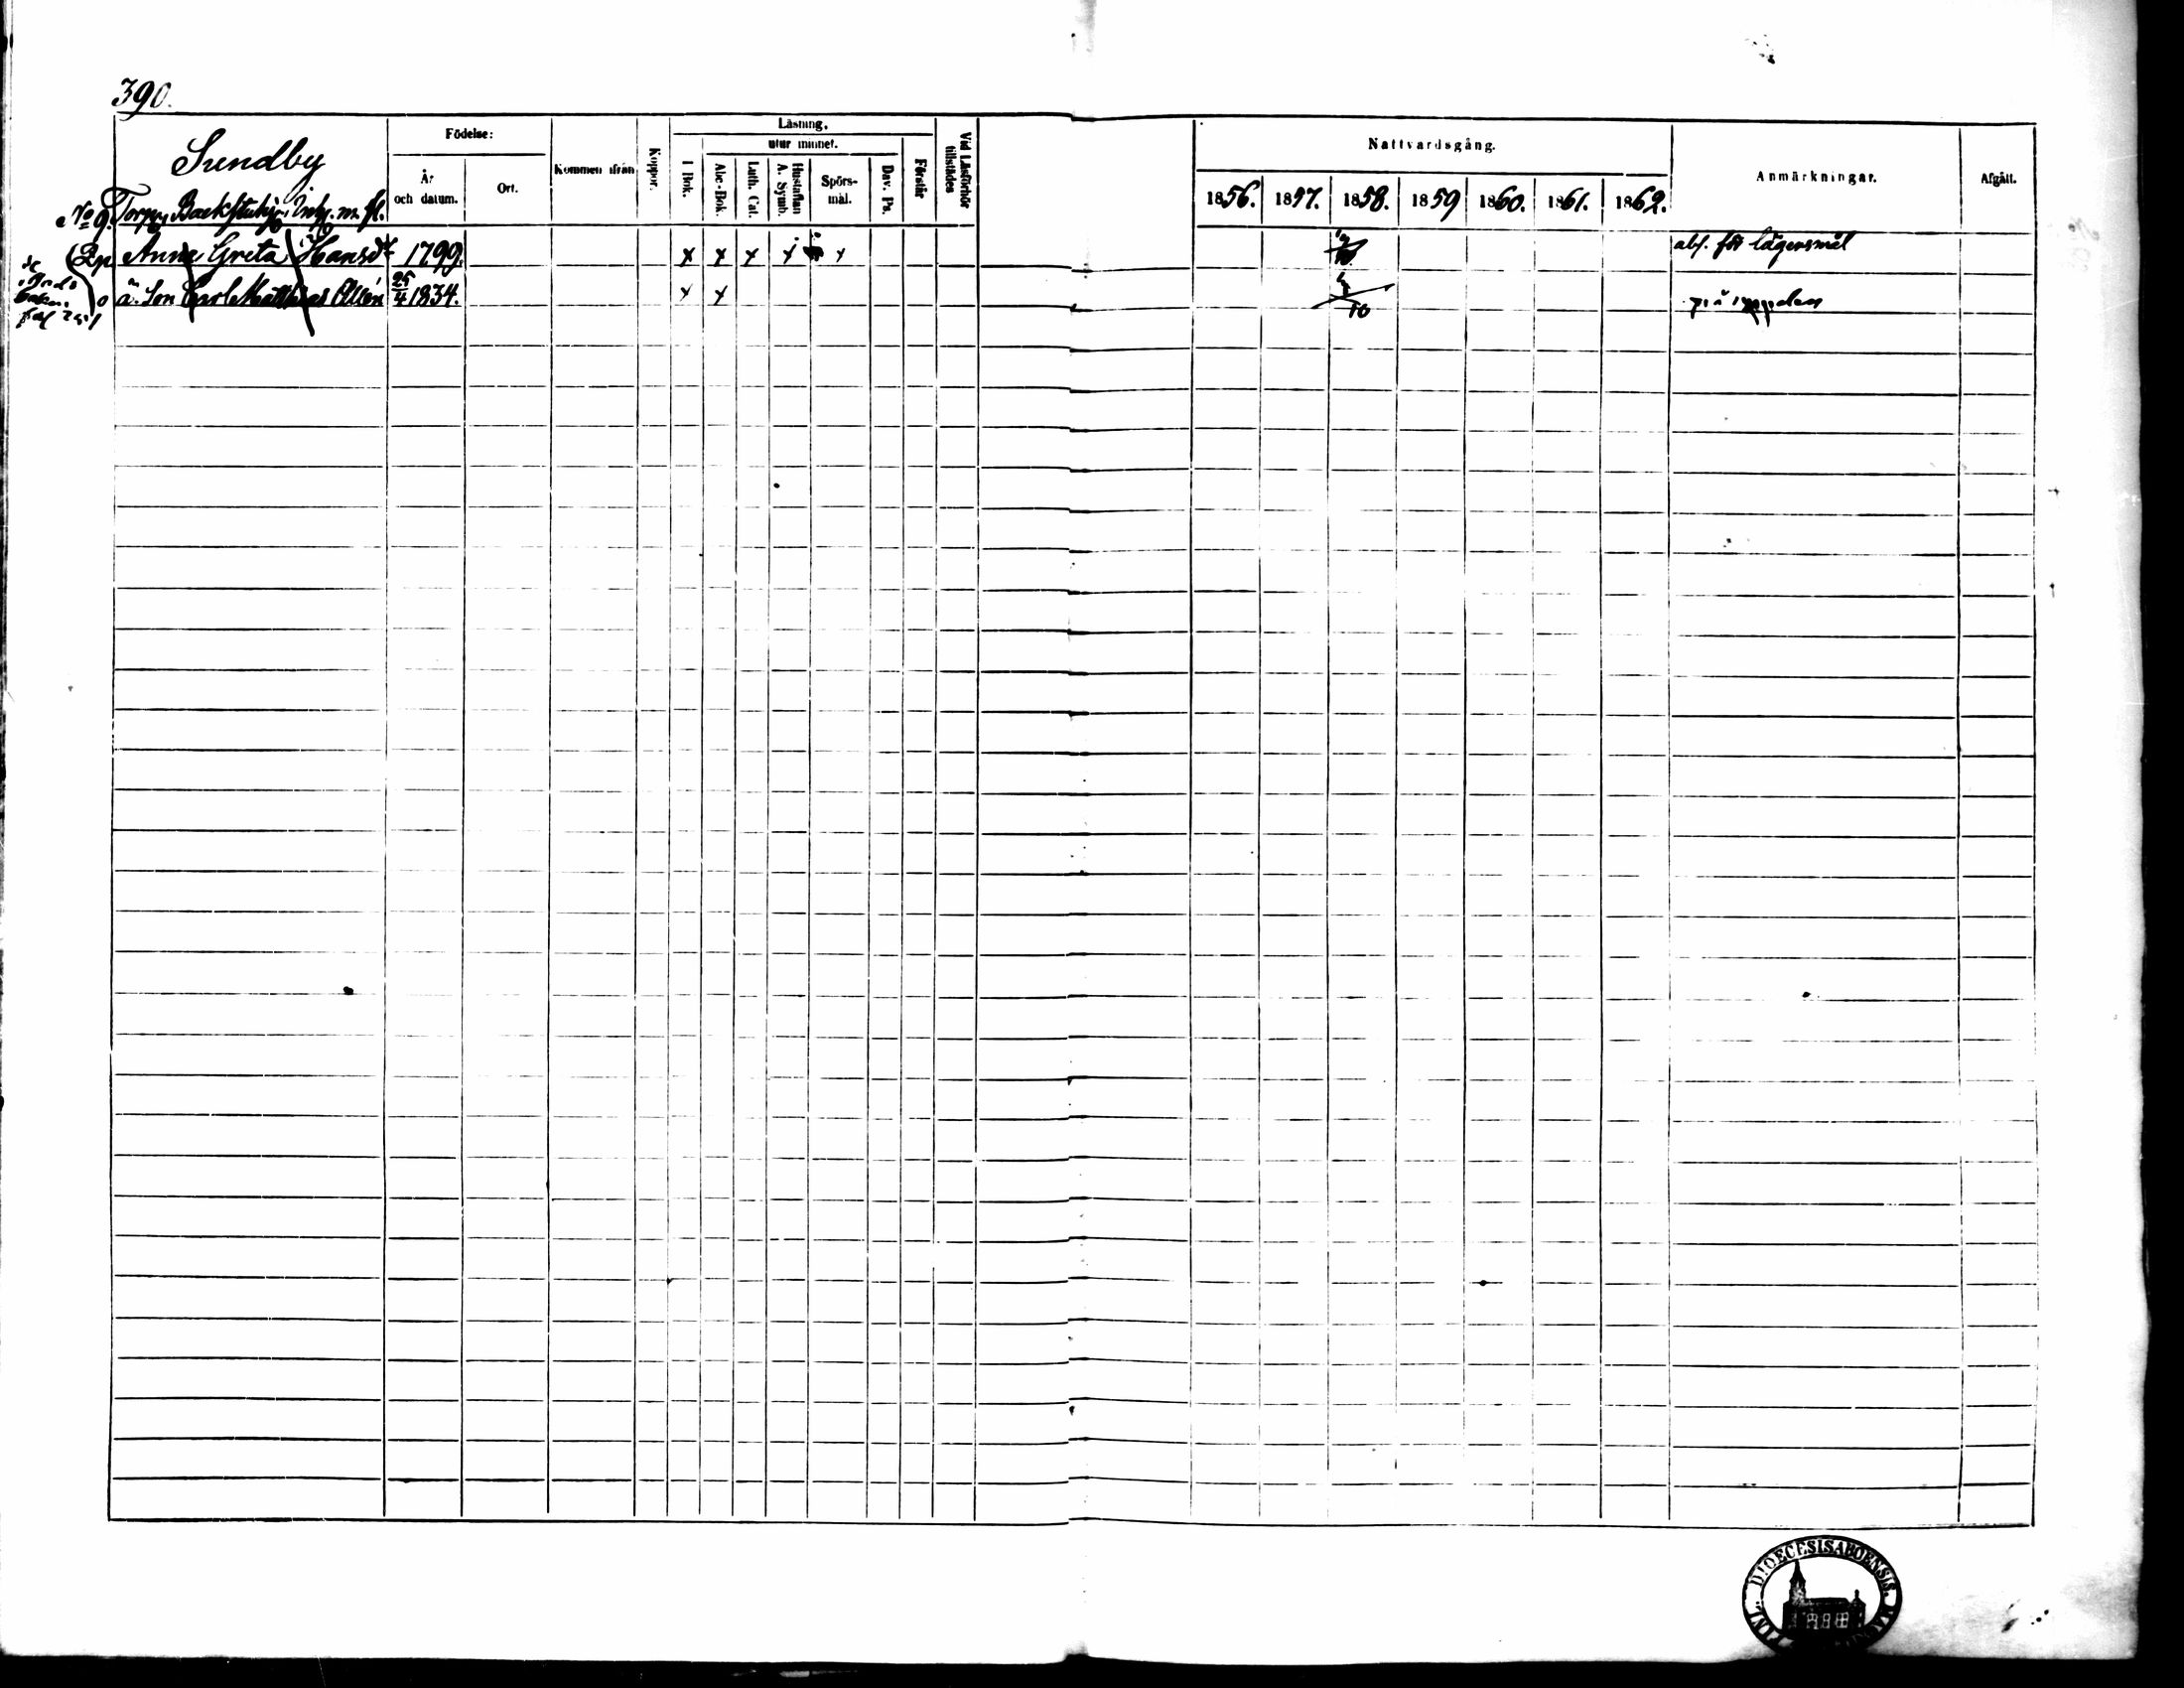 390.
Sundby
Födelse:
År och datum.
Ort.
Kommen ifrån
Koppor.
Läsning,
utur minnet.
I Bok.
Abc-Bok.
Luth. Cat.
Hustaflan A. Symb.
Spörs-mål.
Dav. Ps.
Förstår
Vid Läsförhör tillstädes
Nattvardsgång.
1856. 1857. 1858. 1859 1860. 1861. 1862.
Anmärkningar.
Afgått.
No 9. Torp., Backstuhj., Inh. m. fl.
Anna Greta Hansd. 1799. x x x x x
abs. för lägersmål
ä. Son Carl Matthias Ollén 25/4 1834. x x
10
DIOECESIS ABOENSIS